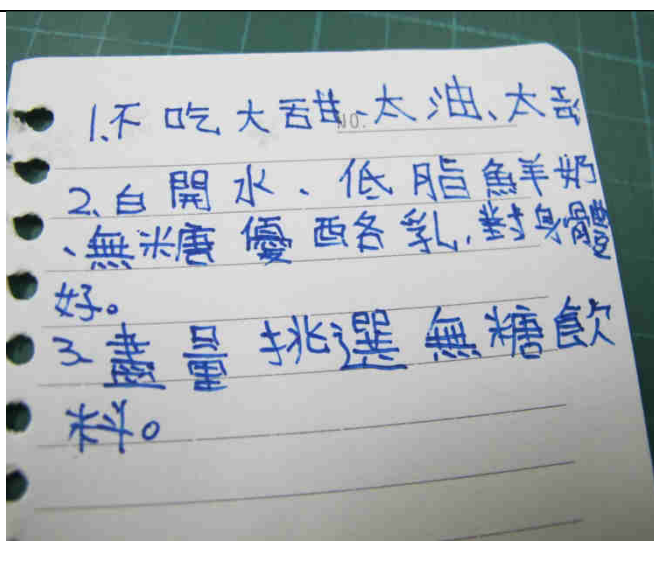 NO.
1.不吃大甜、太油、太
2、白開水、低脂鮮奶
、無糖優酪乳,對身體
好。
3.盡量挑選無糖飲
料。